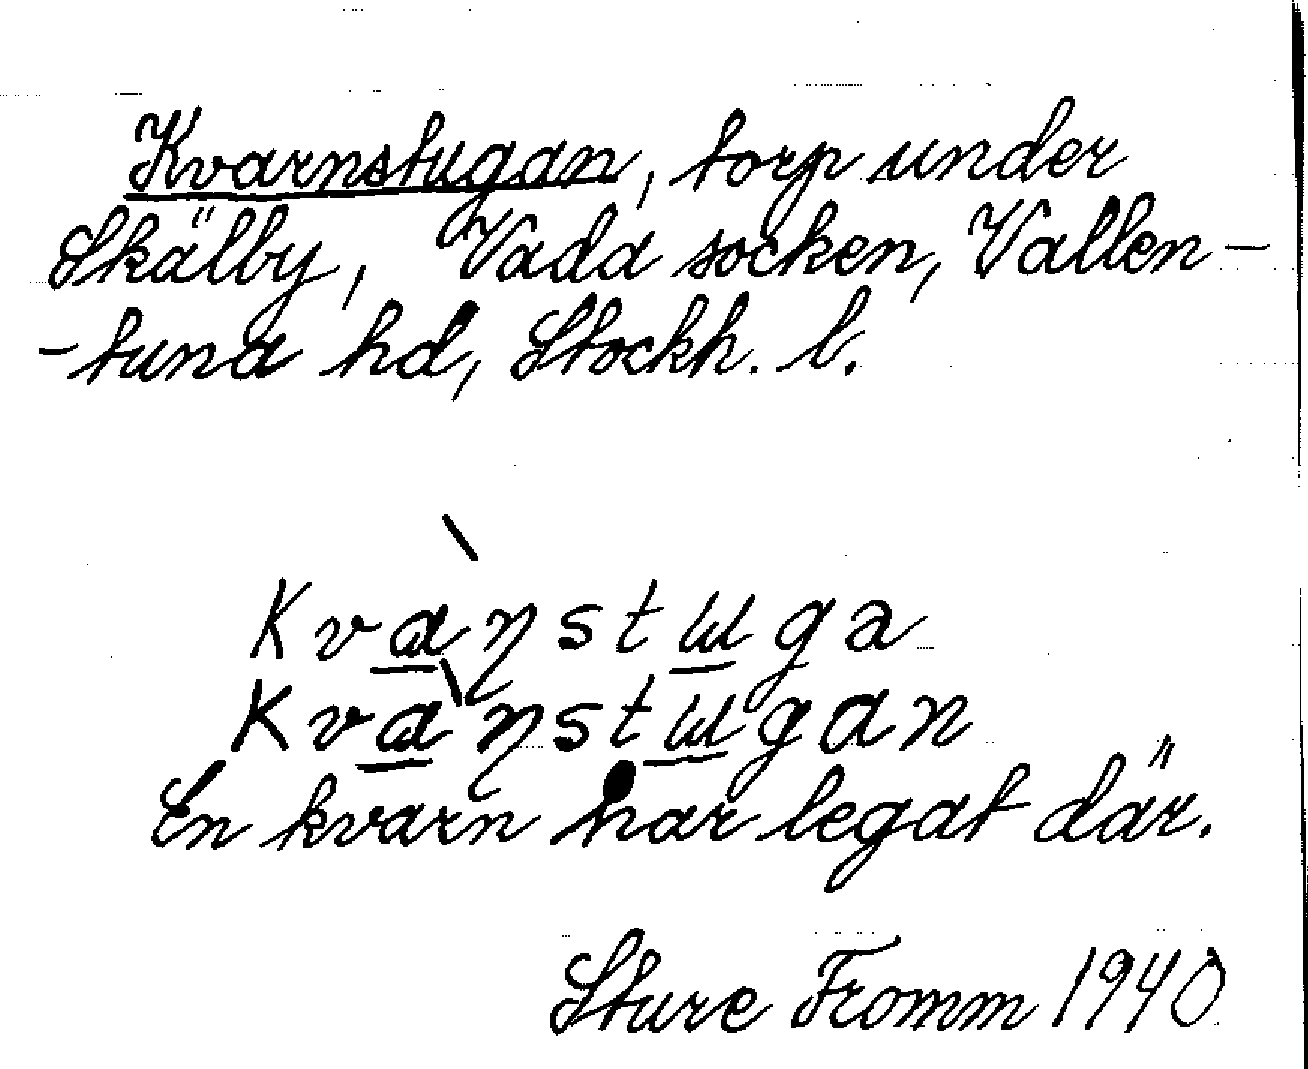 Kvarnstugan, torp under
Skälby, Vada socken, Vallen-
-tuna hd, Stockh. l.
Kvɑ̀ŋstɯga
Kvɑ̀ŋstɯgan
En kvarn har legat där.
Sture Fromm 1940